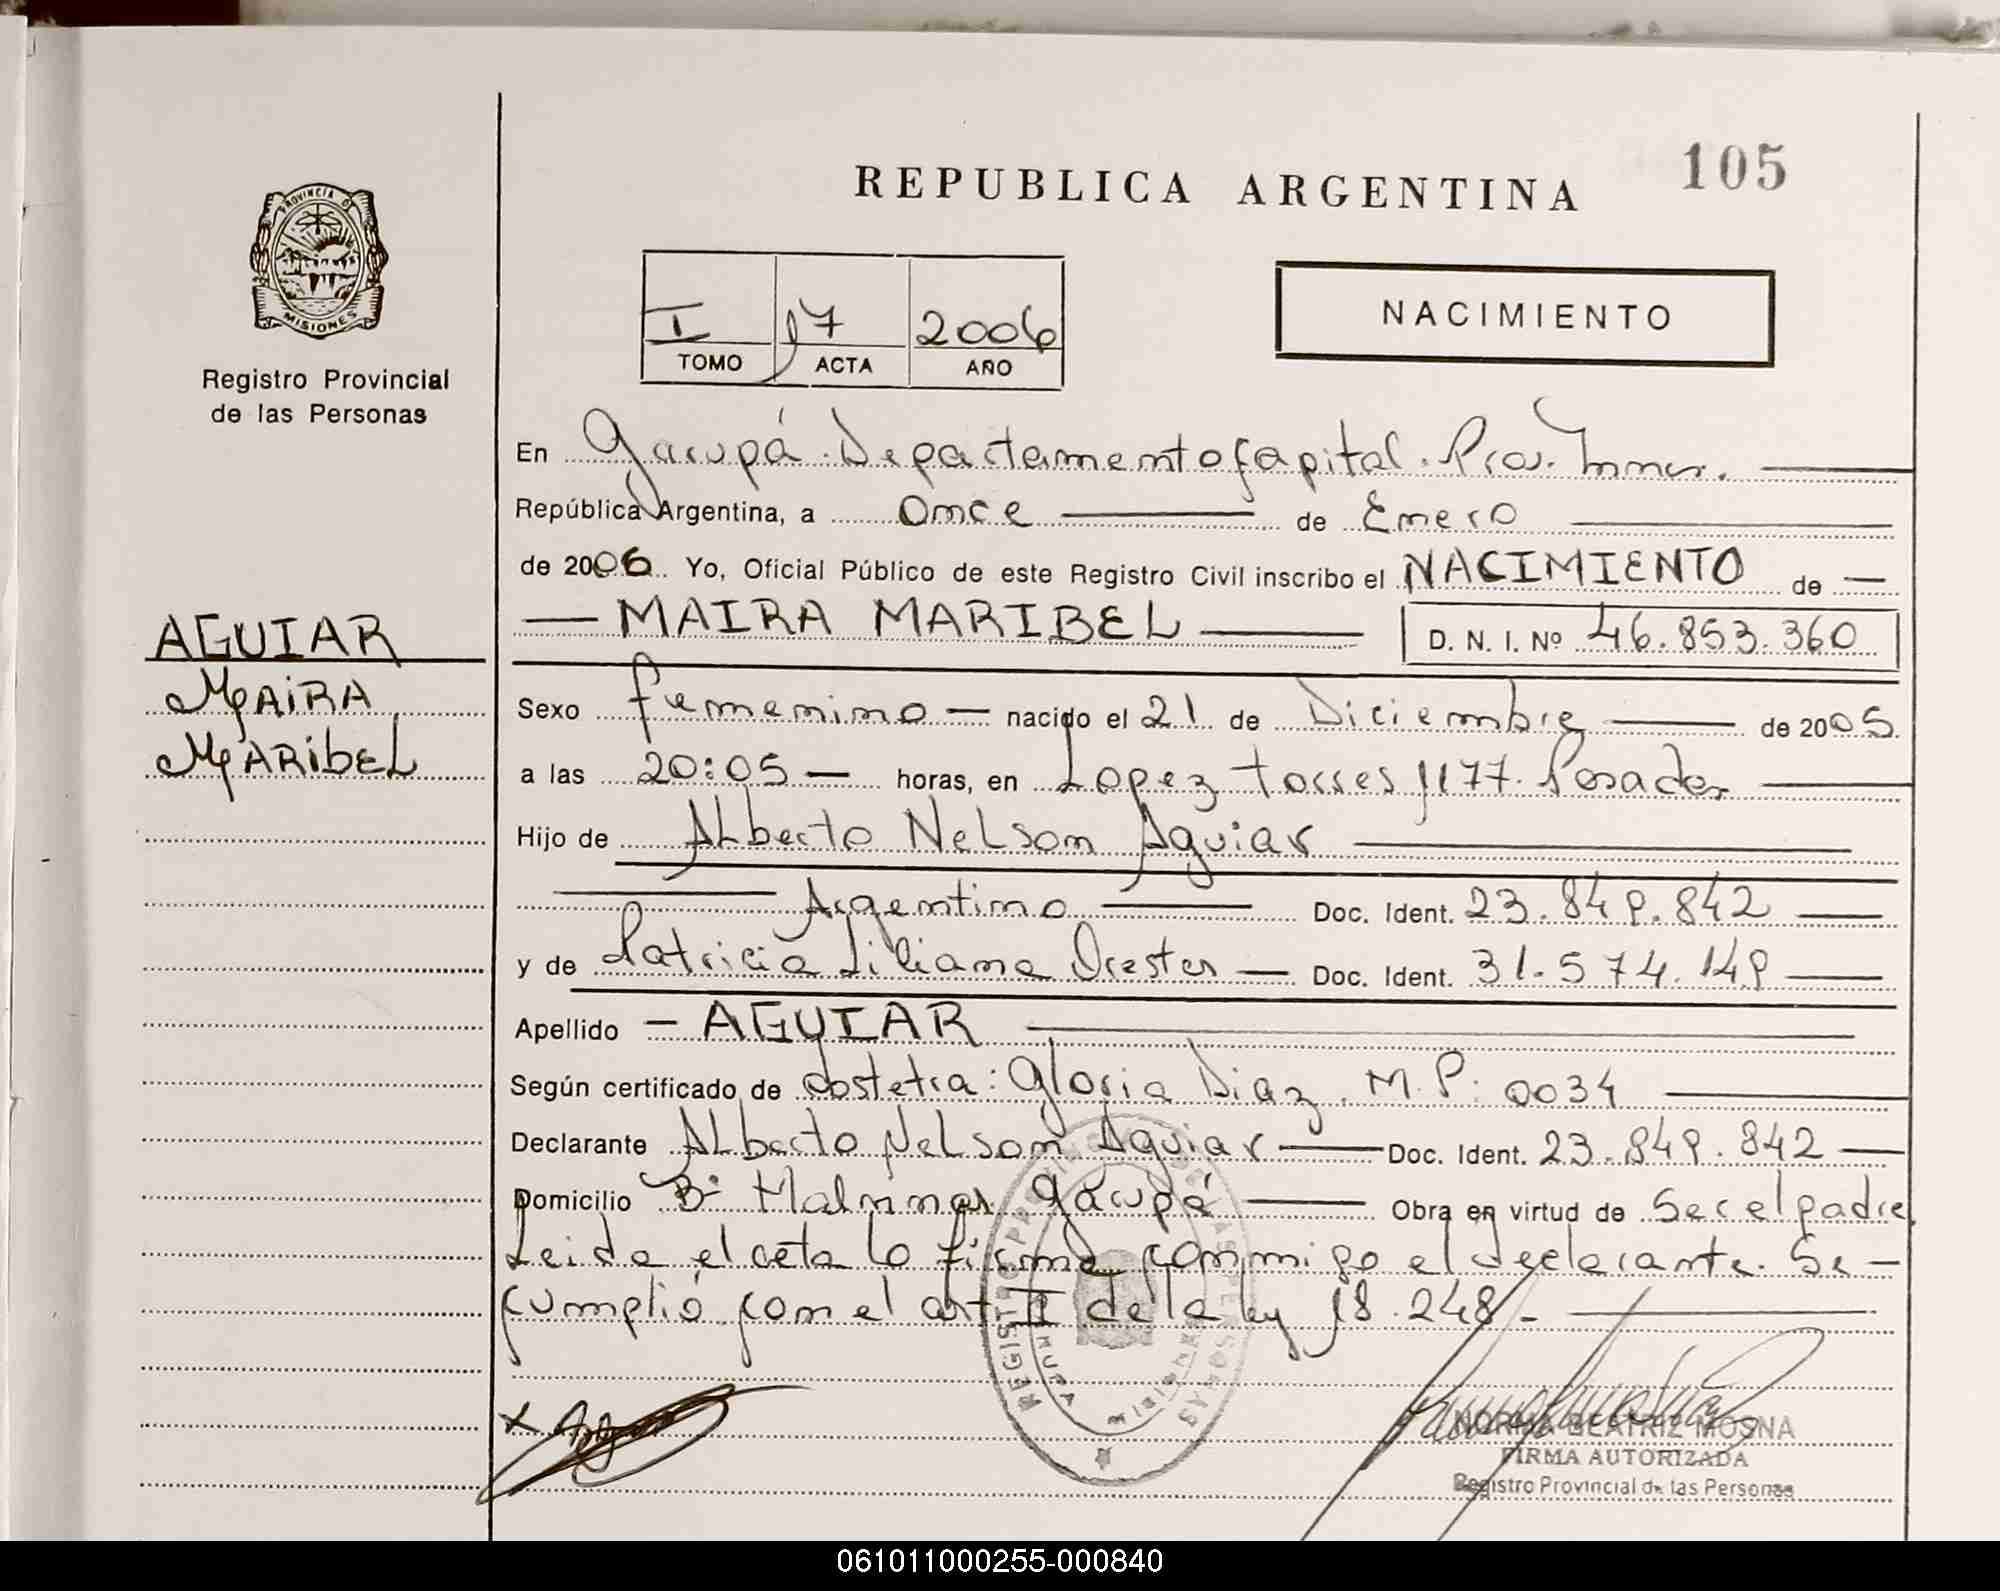 REPUBLICA ARGENTINA
105
PROVINCIA DE
MISIONES
Registro Provincial
de las Personas
I 17 2006
TOMO ACTA AÑO
NACIMIENTO
En Garupá. Departamento Capital. Prov. Mnes.
República Argentina, a Once de Enero
de 2006 Yo, Oficial Público de este Registro Civil inscribo el NACIMIENTO de
MAIRA MARIBEL D. N. I. Nº 46.853.360
AGUIAR
MAIRA
MARIBEL
Sexo femenino nacido el 21 de Diciembre de 2005
a las 20:05 horas, en Lopez Torres 1177. Posadas
Hijo de Alberto Nelson Aguiar
Argentino Doc. Ident. 23.849.842
y de Patricia Liliana Drester Doc. Ident. 31.574.149
Apellido AGUIAR
Según certificado de obstetra: Gloria Diaz. M.P: 0034
Declarante Alberto Nelson Aguiar Doc. Ident. 23.849.842
Domicilio Bº Malvinas Garupá Obra en virtud de Ser el padre,
Leida el acta lo firma conmigo el declarante. Se
cumplió con el art II de la ley 18.248 -
REGISTRO PROVINCIAL DE LAS PERSONAS
MISIONES
NORMA BEATRIZ MOSNA
FIRMA AUTORIZADA
Registro Provincial de las Personas
061011000255-000840